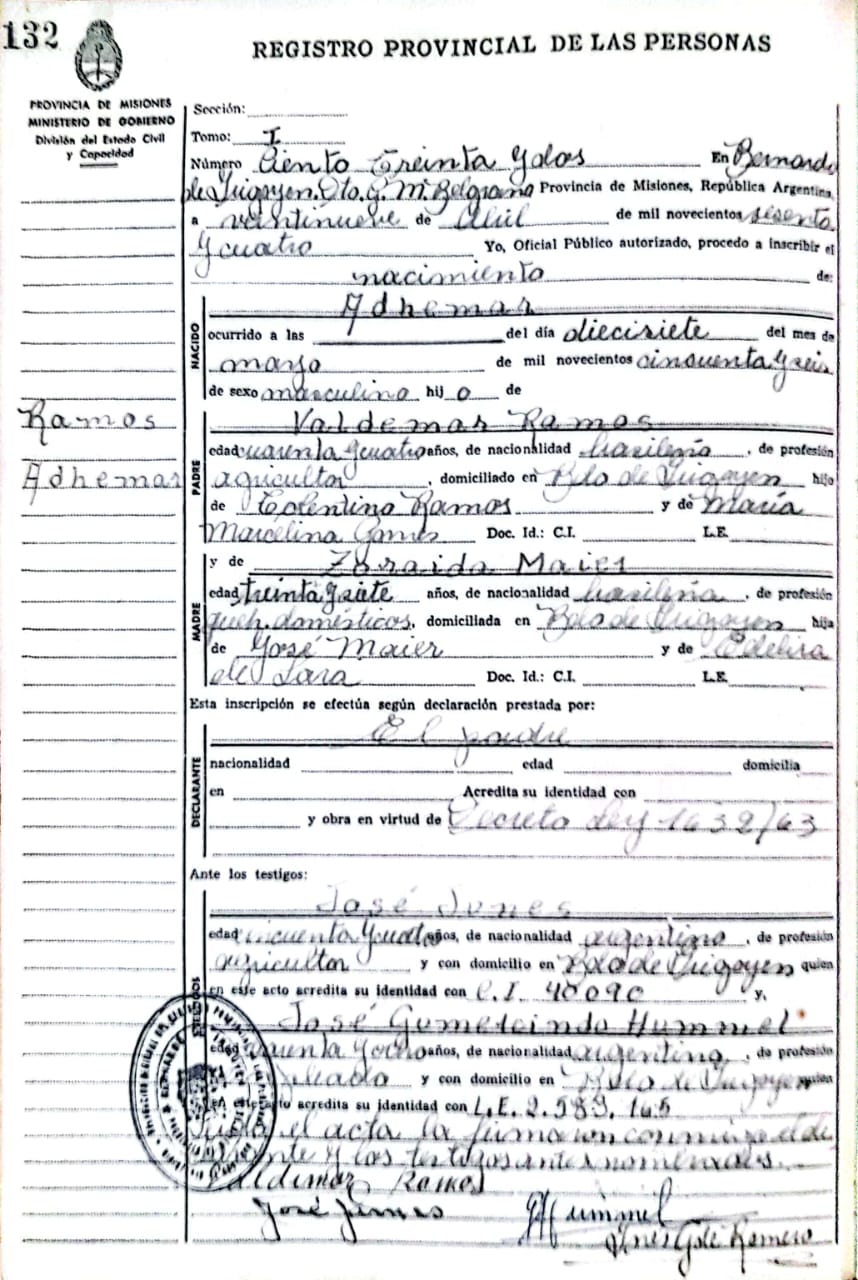 132
REGISTRO PROVINCIAL DE LAS PERSONAS
PROVINCIA DE MISIONES
MINISTERIO DE GOBIERNO
División del Estado Civil
y Capacidad
Sección:
Tomo: I
Número Ciento Treinta y dos En Bernardo
de Irigoyen. Dto. G. M. Belgrano Provincia de Misiones, República Argentina,
a veintinueve de abril de mil novecientos sesenta
y cuatro Yo, Oficial Público autorizado, procedo a inscribir el
nacimiento de:
Adhemar
NACIDO
ocurrido a las del día diecisiete del mes de
mayo de mil novecientos cincuenta y seis
de sexo masculino hijo de
Ramos
Adhemar
Valdemar Ramos
PADRE
edad cuarenta y cuatro años, de nacionalidad brasileña, de profesión
agricultor, domiciliado en Bdo de Irigoyen hijo
de Tolentino Ramos y de María
Marcelina Doc. Id.: C.I. L.E.
y de Zoraida Maier
MADRE
edad treinta y siete años, de nacionalidad brasileña, de profesión
queh. domésticos, domiciliada en Bdo de Irigoyen hija
de José Maier y de
de Lara Doc. Id.: C.I. L.E.
Esta inscripción se efectúa según declaración prestada por:
El padre
DECLARANTE
nacionalidad edad domicilia
en Acredita su identidad con
y obra en virtud de Decreto Ley 1632/63
Ante los testigos:
José Junes
TESTIGOS
edad cincuenta y cuatro años, de nacionalidad argentino, de profesión
agricultor y con domicilio en Bdo de Irigoyen quien
en este acto acredita su identidad con C.I. 40090 y,
José Gumercindo Hummel
edad cuarenta y ocho años, de nacionalidad argentino, de profesión
y con domicilio en Bdo de Irigoyen quien
en este acto acredita su identidad con L.E. 2.589.165
el acta la firmaron conmigo el
y los testigos antes nombrados.
Valdimar Ramos
José Junes
Hummel
Romero